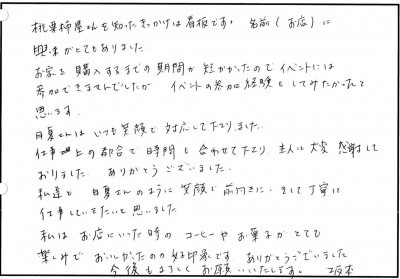 桃栗柿屋さんを知ったきっかけは看板です。 名前(お店)に
興味がとてもありました。
お家を購入するまでの期間が短かかったのでイベントには
参加できませんでしたが イベントの参加経験もしてみたかったと
思います。
日夏さんはいつも笑顔で対応して下さりました。
仕事上の都合で時間も合わせて下さり、主人は大変感謝して
おりました。 ありがとうございました。
私達も 日夏さんのように笑顔で前向きに、そして丁寧に
仕事していきたいと思いました
私はお店にいた時の コーヒーやお菓子がとても
楽しみで おいしかったのも好印象です ありがとうございました
今後もよろしくお願いいたします。